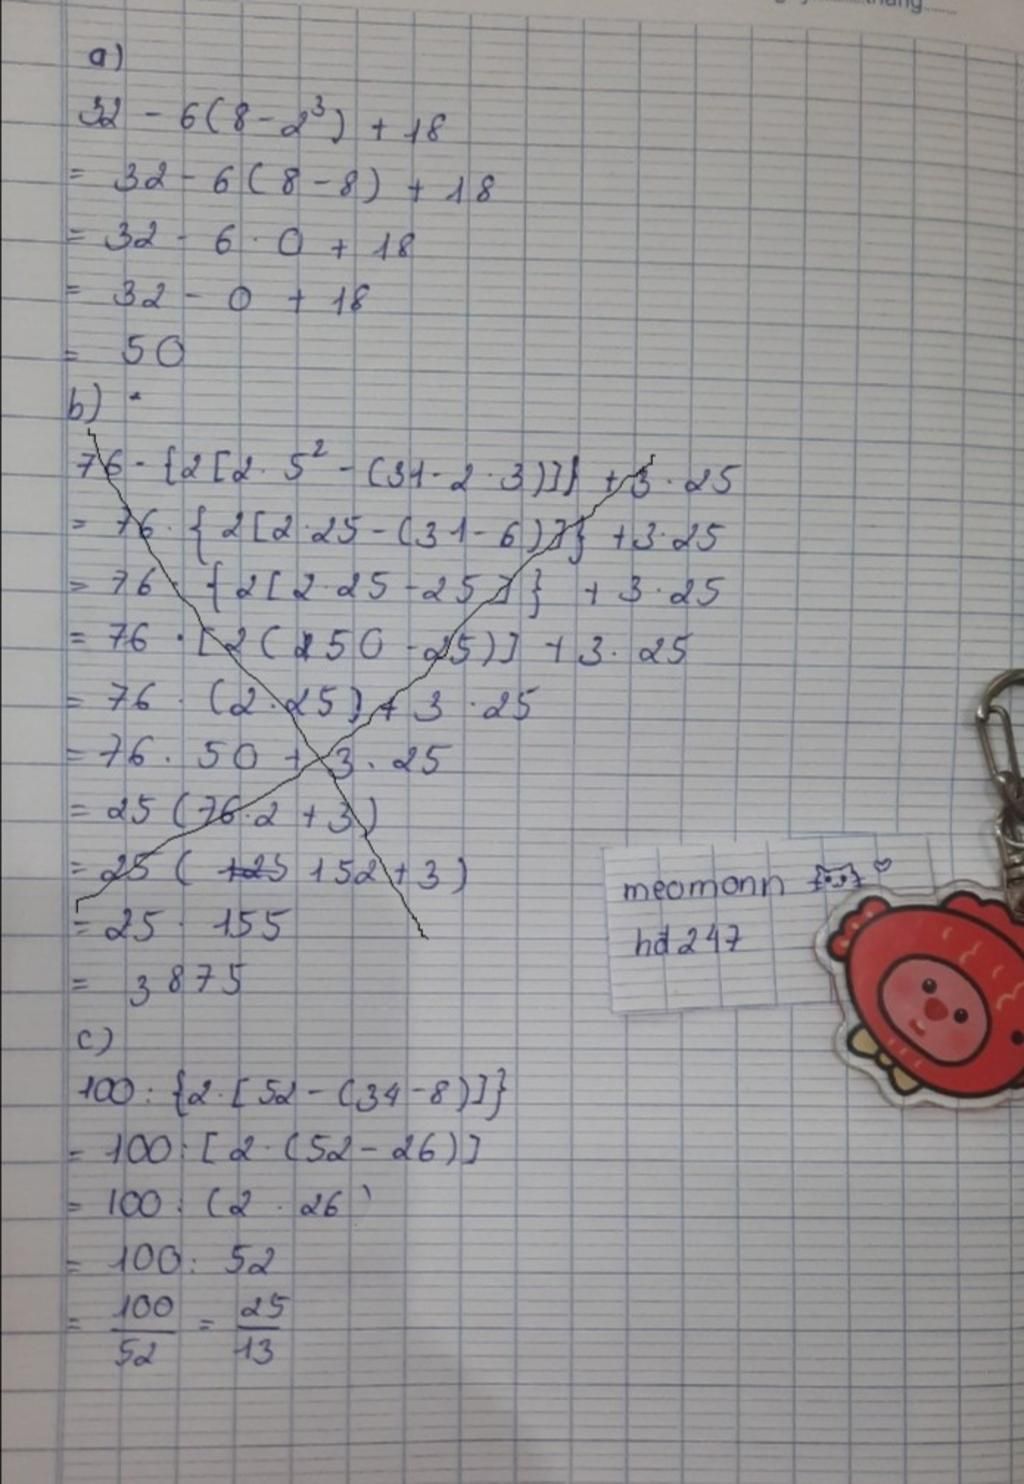 a)
32 - 6(8 - 2³) + 18
= 32 - 6(8 - 8) + 18
= 32 - 6 · 0 + 18
= 32 - 0 + 18
= 50
b)
76 - {2[2 · 5² - (31 - 2 · 3)]} + 3 · 25
= 76 · {2[2 · 25 - (31 - 6)]} + 3 · 25
= 76 · {2[2 · 25 - 25]} + 3 · 25
= 76 · [2(50 - 25)] + 3 · 25
= 76 · (2 · 25) + 3 · 25
= 76 · 50 + 3 · 25
= 25(76 · 2 + 3)
= 25(152 + 3)
= 25 · 155
= 3875
meomonn
hd247
c)
100 : {2 · [52 - (34 - 8)]}
= 100 : [2 · (52 - 26)]
= 100 : (2 · 26)
= 100 : 52
= 100/52 = 25/13